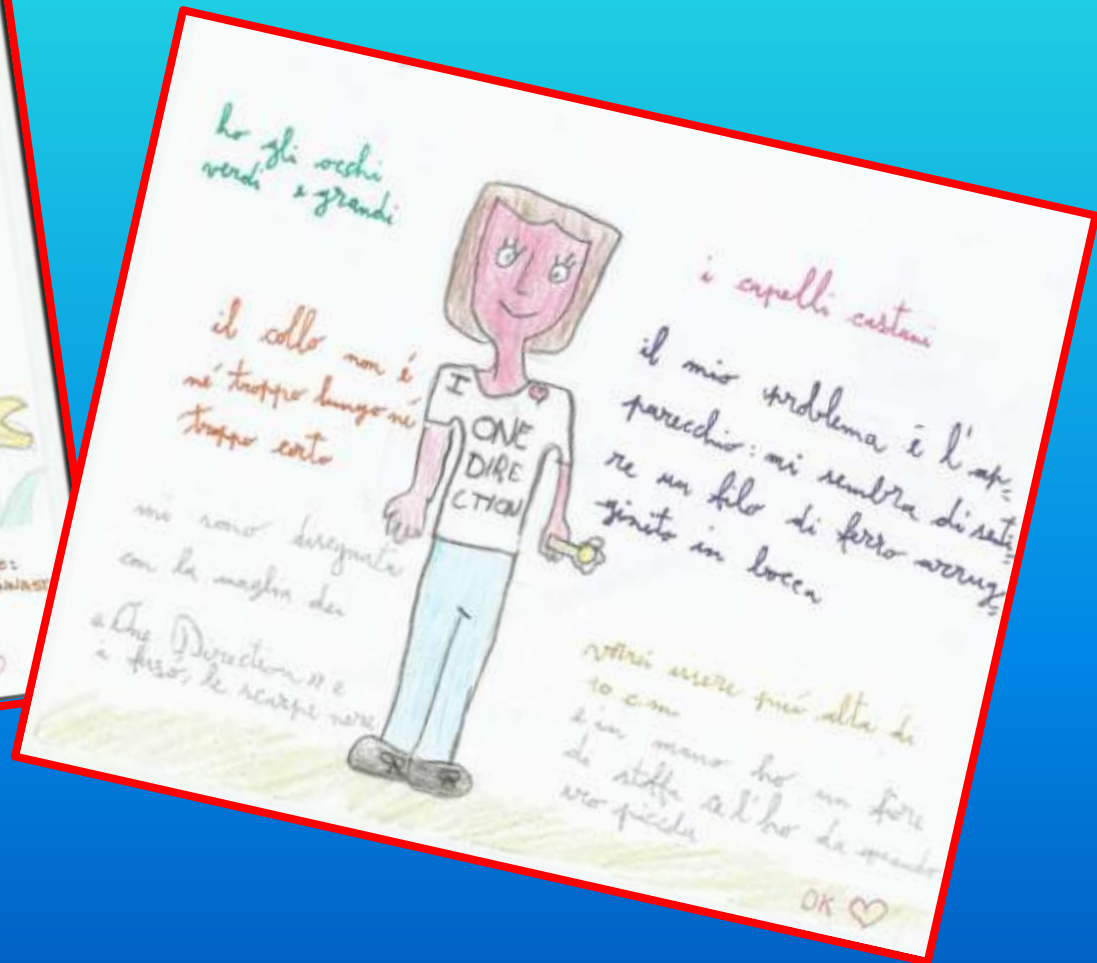 ho gli occhi
verdi e grandi
i capelli castani
il collo non é
né troppo lungo né
troppo corto
il mio problema è l'ap=
parecchio: mi sembra di senti=
re un filo di ferro arrug=
ginito in bocca
mi sono disegnata
con la maglia dei
« One Direction » e
i fusó, le scarpe nere
I
ONE
DIRE
CTION
vorrei essere piú alta di
10 cm
e in mano ho un fiore
di stoffa ce l'ho da quando
ero piccola
OK